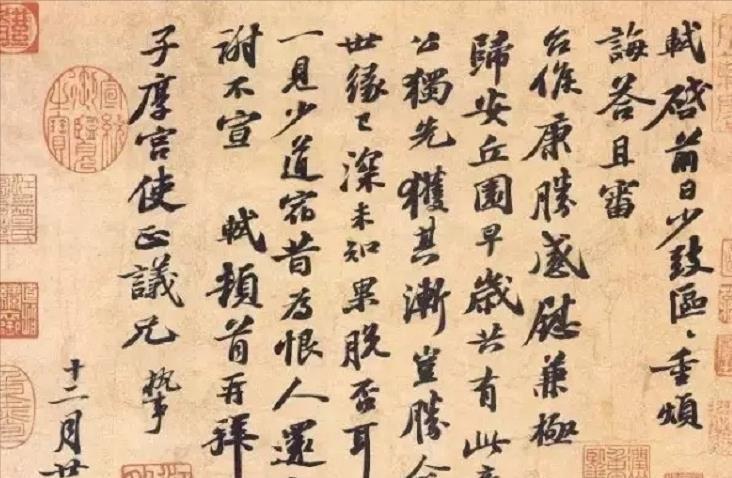 軾啓前日少致區〻重煩
誨答且審
台候康勝感慰兼極
歸安丘園早歲共有此
公獨先獲其漸豈勝
世緣已深未知果脫否耳
一見少道宿昔為恨人還
謝不宣 軾頓首再拜
子厚宮使正議兄 執事
十二月廿